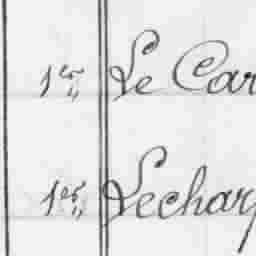 1er, Le Car
1er, Lechar